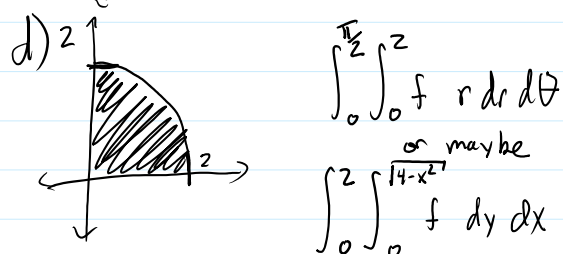 d) 2
2
∫₀^{π/2} ∫₀² f r dr dθ
or maybe
∫₀² ∫₀^{√(4-x²)} f dy dx